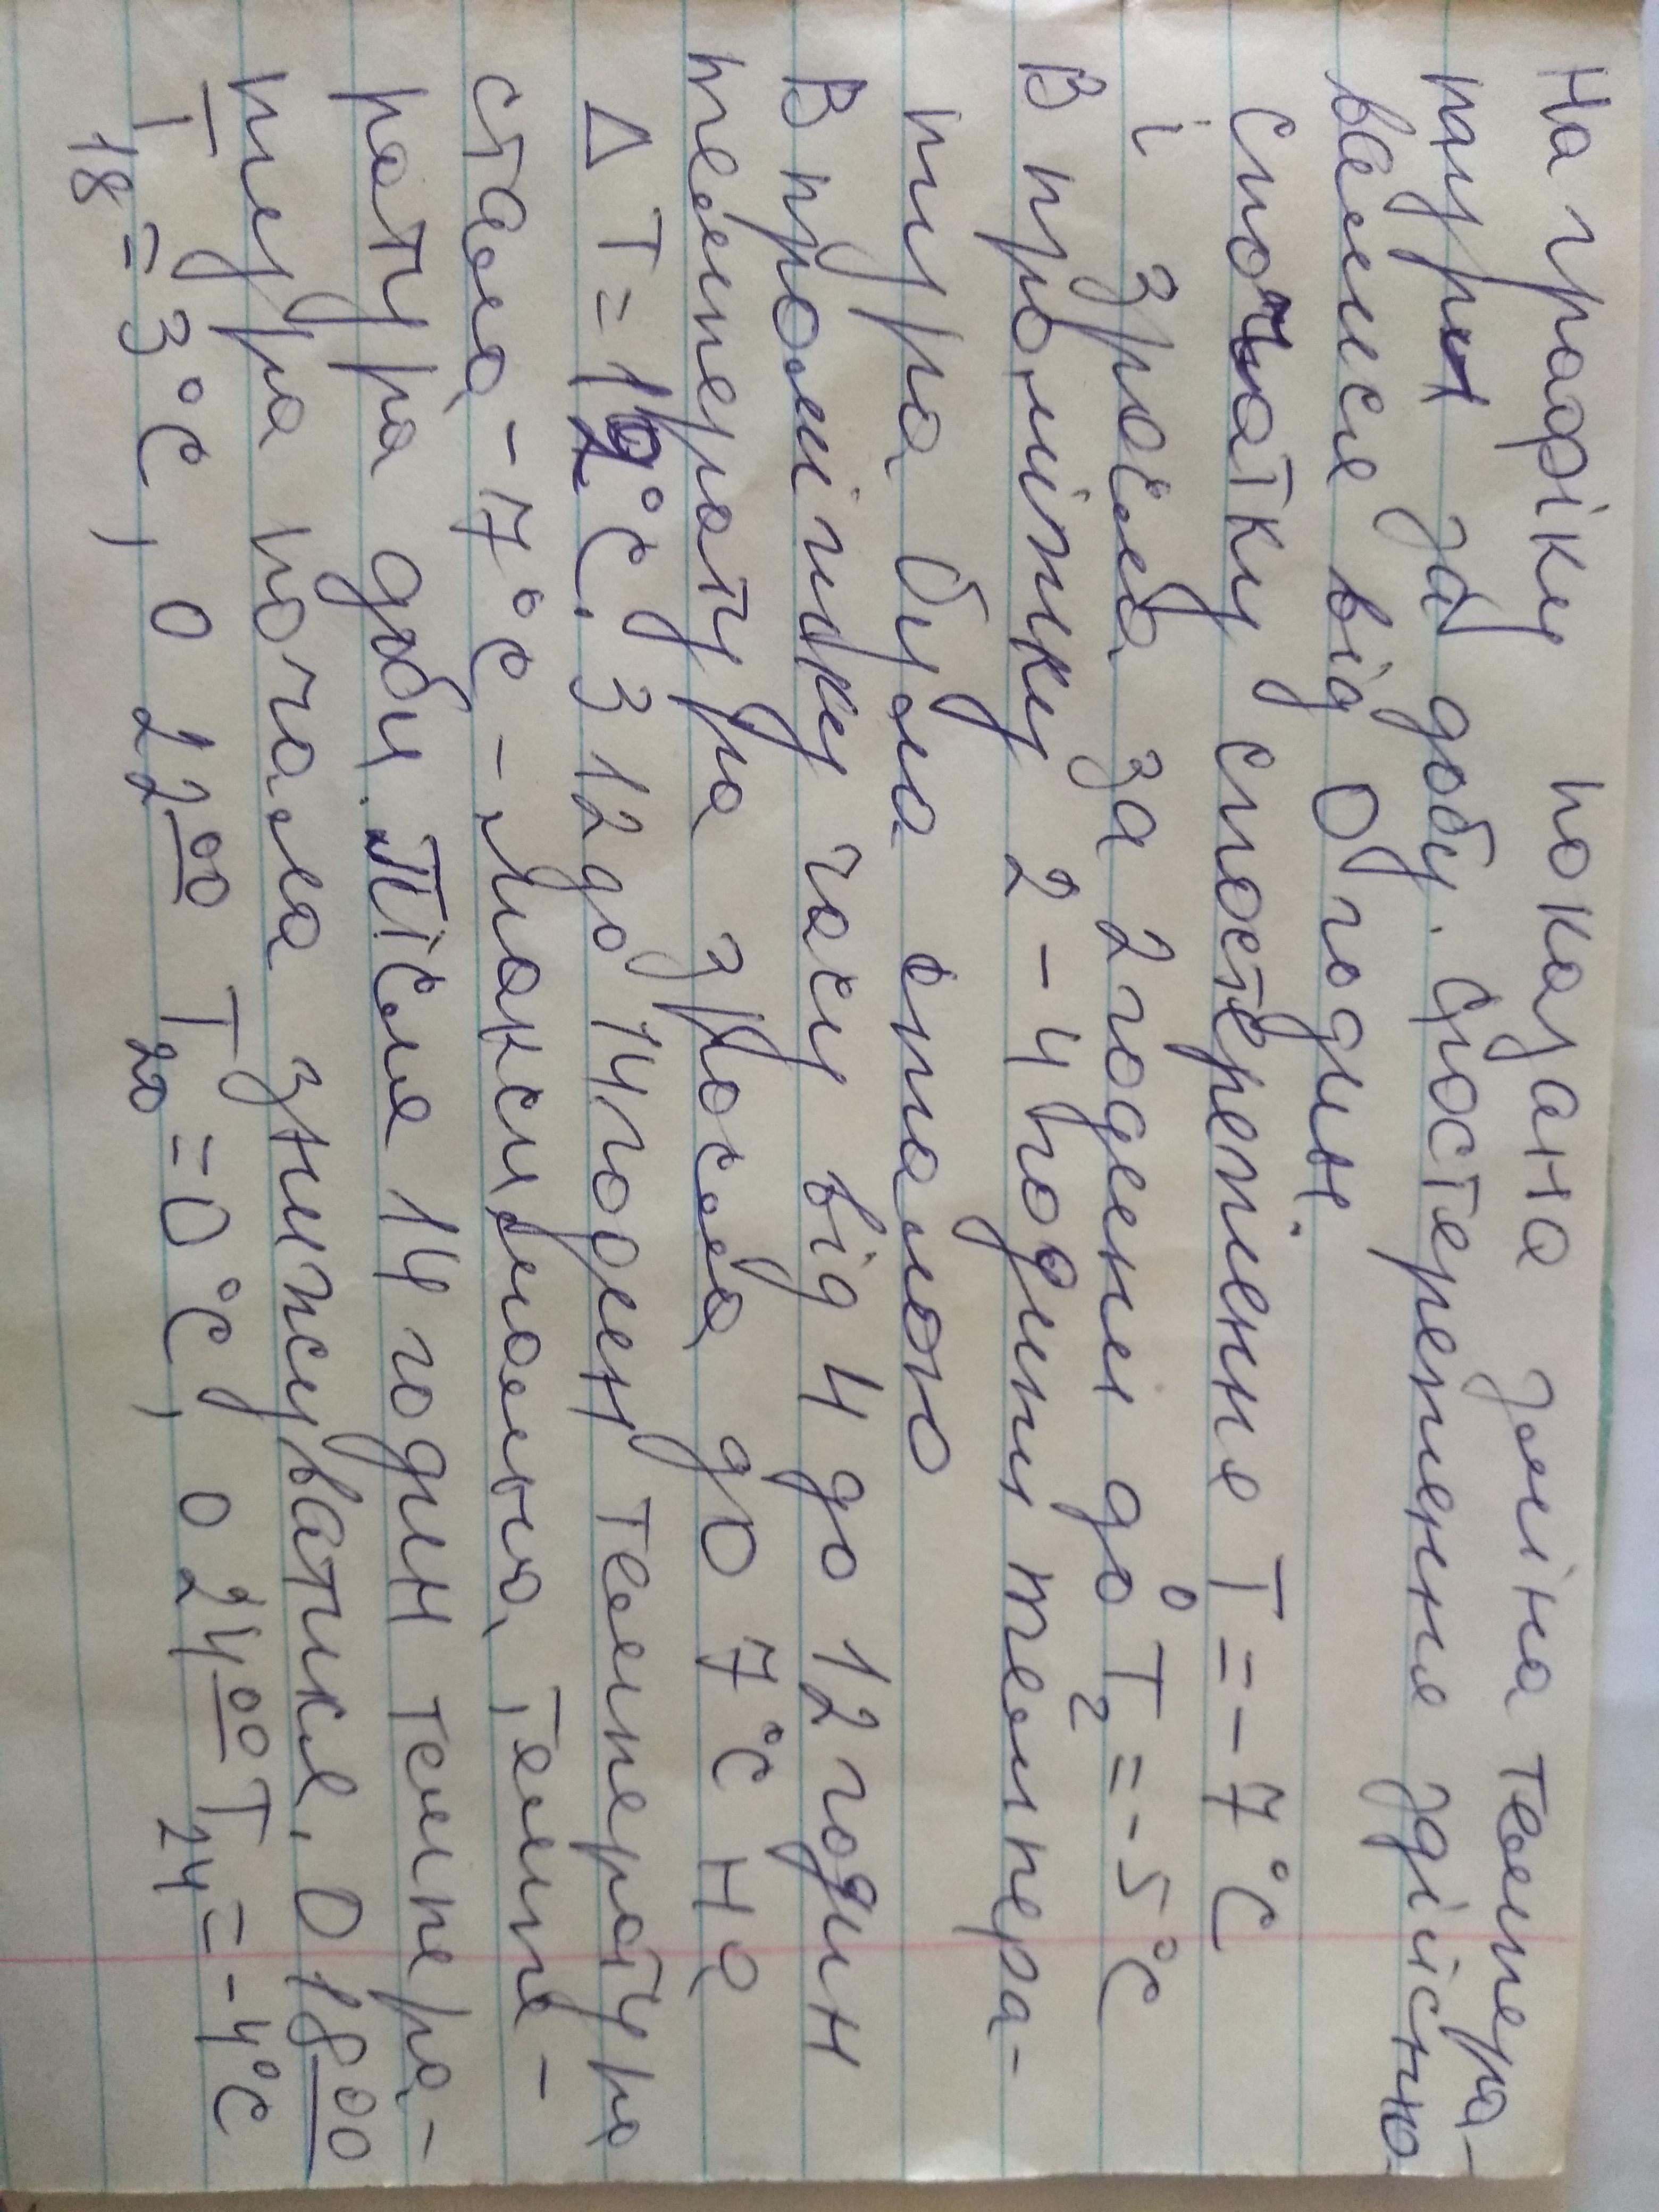 На графіку показана зміна темпера-
тури за добу. Спостереження здійсню
валися від 0 годин.
Спочатку спостереження T = - 7°C
і зросла за 2 години до T₂ = - 5°C
В проміжку 2 - 4 години темпера-
тура була сталою
В проміжку часу від 4 до 12 годин
температура зросла до 7°C на
Δ T = 12°C. З 12 до 14 годин температура
стала - 7°C - максимальна темпе-
ратура доби. Після 14 годин темпера-
тура почала знижуватися. О 18 00
T₁₈ = 3°C, о 22 00 T₂₀ = 0°C, о 24 00 T₂₄ = - 4°C